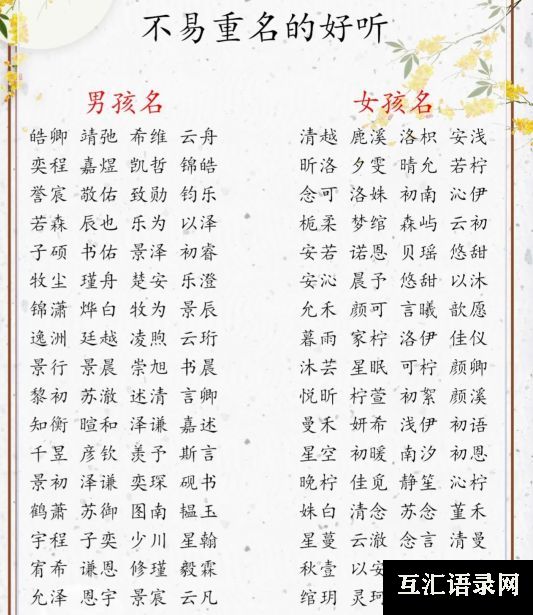 不易重名的好听
男孩名
皓卿 靖弛 希维 云舟
奕程 嘉煜 凯哲 锦皓
誉宸 敬佑 致勋 钧乐
若森 辰也 乐为 以泽
子硕 书佑 景泽 初睿
牧尘 瑾舟 楚安 乐澄
锦潇 烨白 牧为 景辰
逸洲 廷越 凌煦 云珩
景行 景晨 崇旭 书晨
黎初 苏澈 述清 言卿
知衡 暄和 泽谦 嘉述
千昱 彦钦 羡予 斯言
景初 泽谦 奕琛 砚书
鹤萧 苏御 图南 韫玉
宇程 子奕 少川 星翰
宥希 谦恩 修瑾 毅霖
允泽 恩宇 景宸 云凡
女孩名
清越 鹿溪 洛枳 安浅
昕洛 夕雯 晴允 若柠
念可 洛姝 初南 沁伊
栀柔 梦绾 森屿 云初
安若 诺恩 贝瑶 悠甜
安沁 晨予 悠甜 以沐
允禾 颜可 言曦 歆愿
暮雨 家柠 洛伊 佳仪
沐芸 星眠 可柠 颜卿
悦昕 柠萱 初絮 颜溪
曼禾 妍希 浅伊 初语
星空 初暖 南汐 初恩
晚柠 佳觅 静笙 沁柠
姝白 清念 苏念 堇禾
星蔓 云澈 念言 清曼
秋壹 以安
绾玥 灵珂
互汇语录网